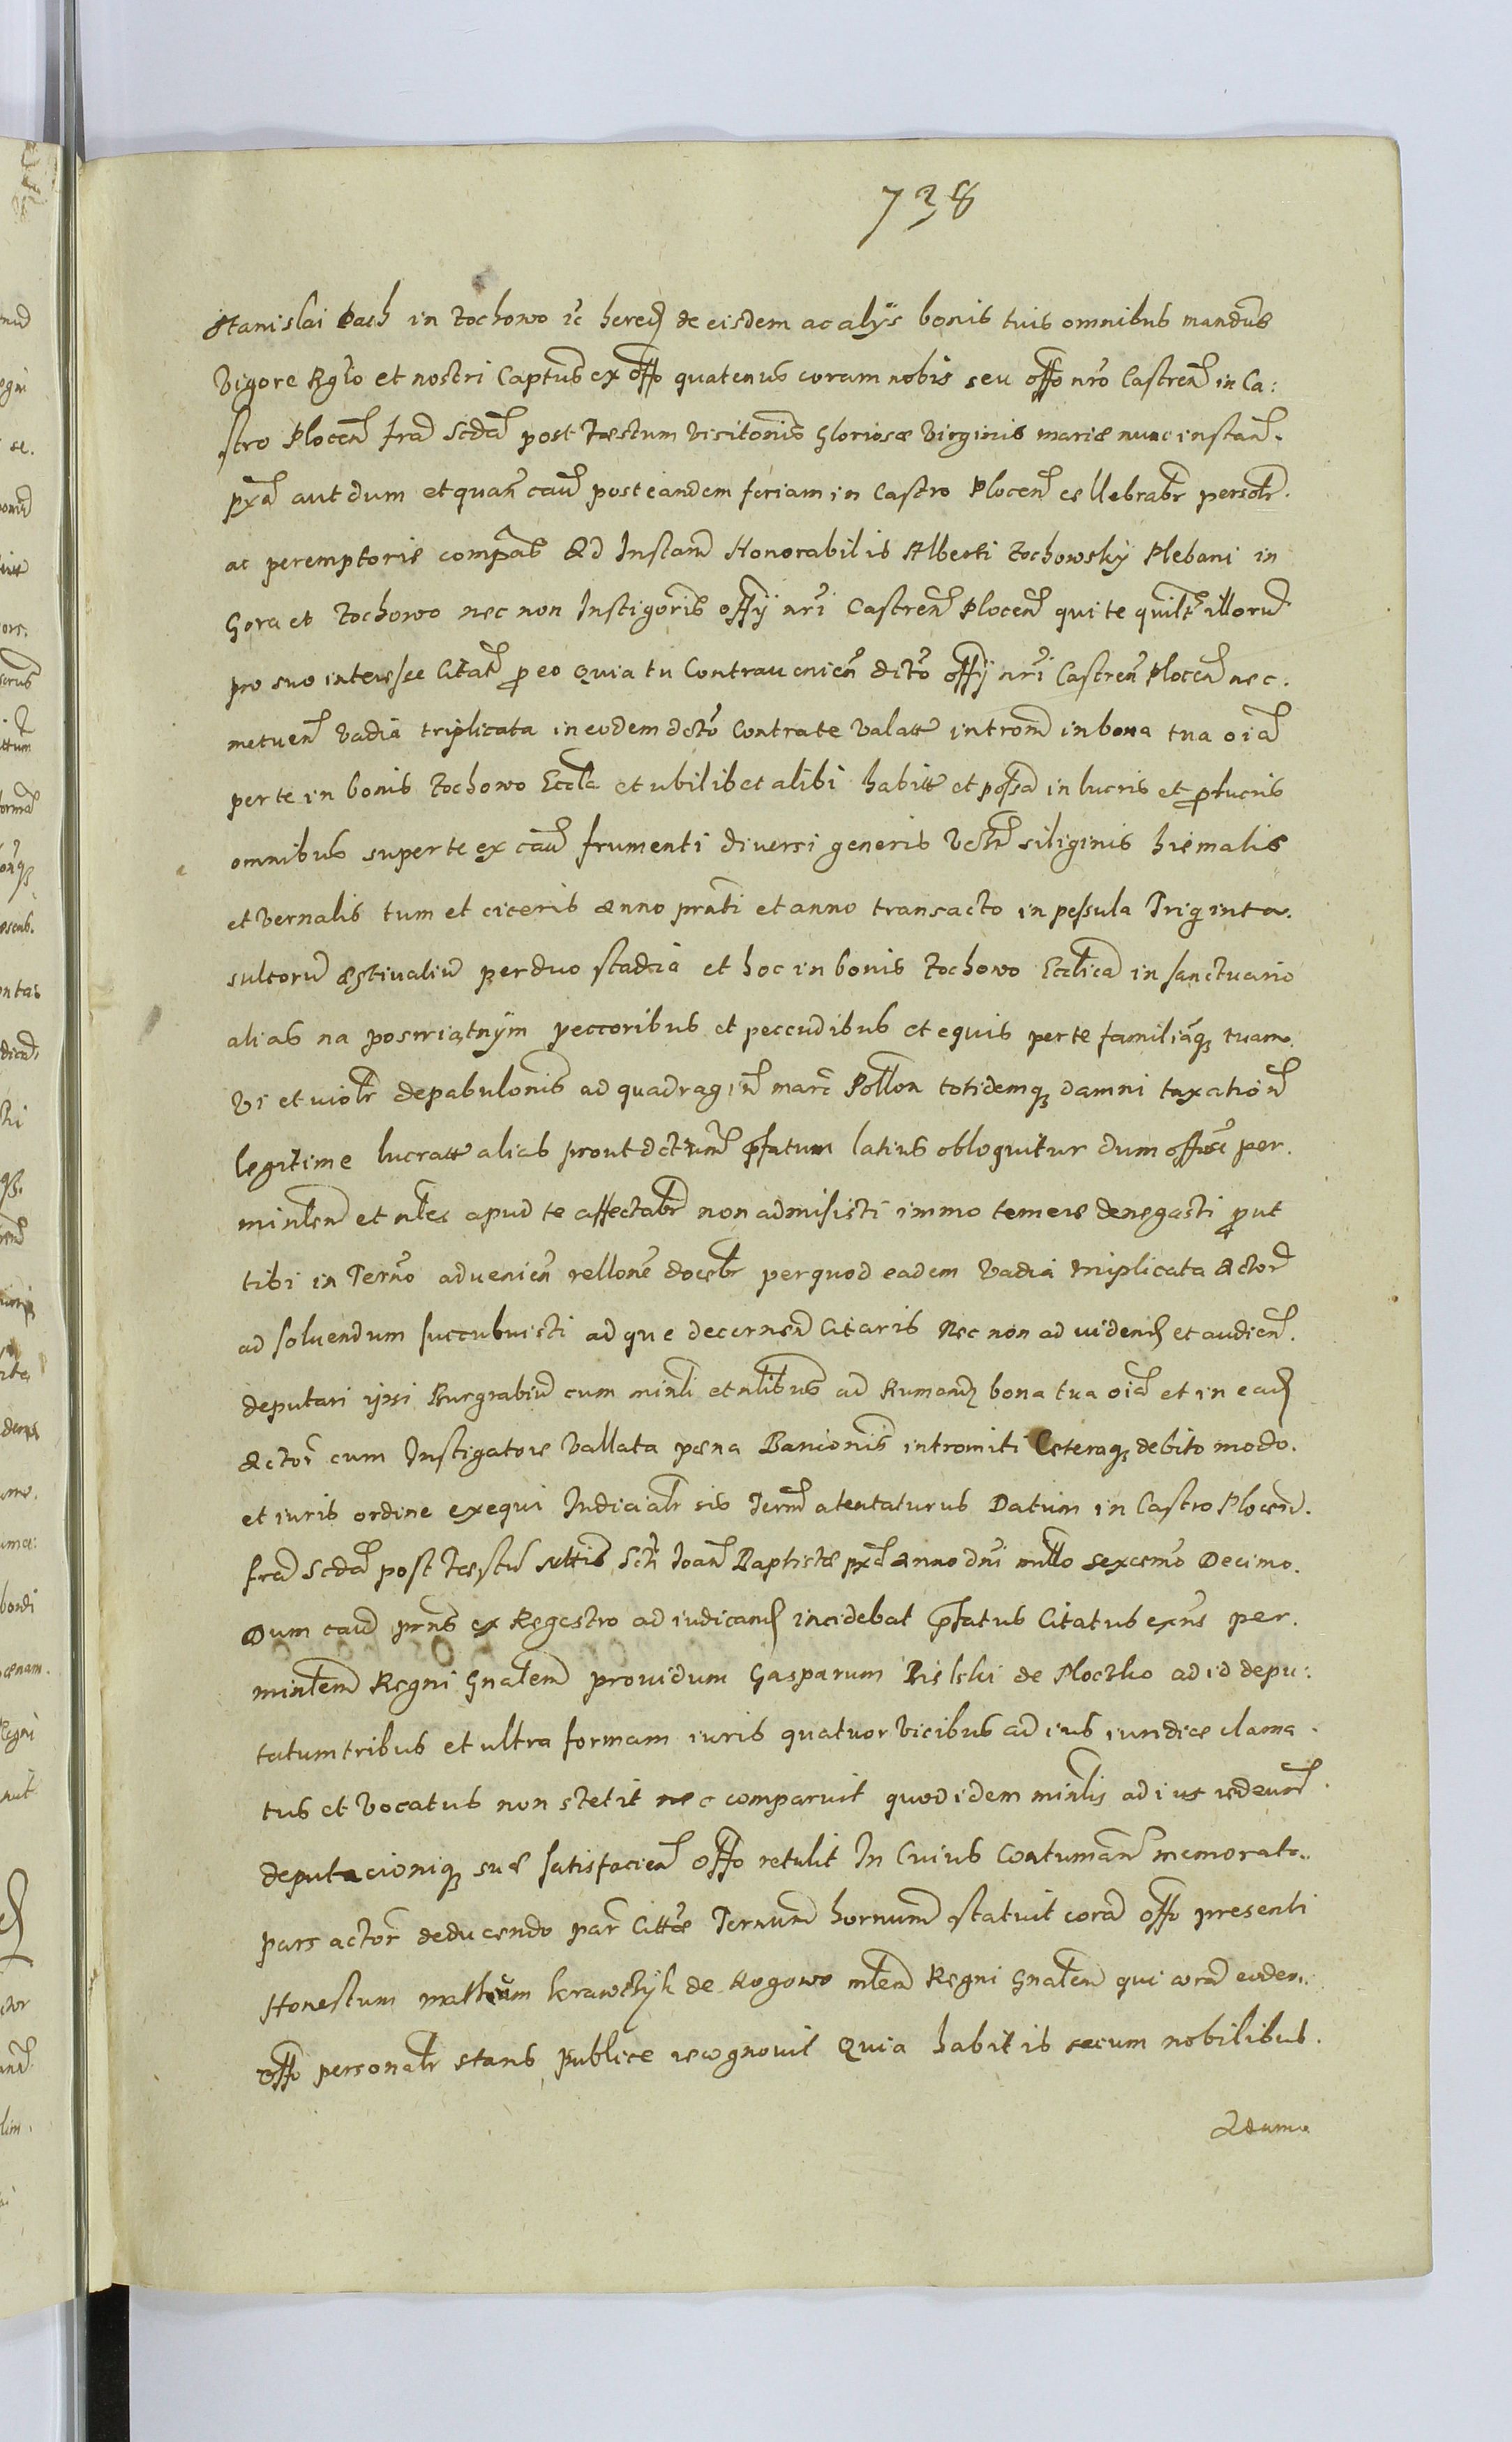 738
Stanislai Pach in Rochowo &c hered de eisdem ac alÿs bonis tuis omnibus mandus
Vigore Rglo et nostri Captus ex offo quatenus coram nobis seu offo nro Castren in Ca:
stro Plocen fra Scda post Festum Visitonis Gloriosæ Virginis mariæ nunc instan.
pxa aut dum et quan cau post eandem feriam in Castro Plocen cellebrabr persolr.
ac peremptorie compas Ad Instam Honorabilis Alberti Rochowskÿ Plebani in
Gora et Rochowo nec non Instigoris offÿ nri Castren Plocen qui te quilt illoru
pro suo interesse Citat p eo Quia tu Contravenien dcto offÿ nri Castren Plocen nec.
metuen Vadia triplicata in eodem dcto Contra te Valatt introm in bona tua oia
per te in bonis Rochowo Eccla et ubilibet alibi habitt et possa in lucris et perlucris
omnibus super te ex cau frumenti diversi generis Vtn siliginis hiemalis
et Vernalis tum et ciceris anno prnti et anno transacto in pessula Triginta.
sulcoru æstivaliu per duo stadia et hoc in bonis Rochowo Ecclica in sanctuario
alias na poswiątnÿm peccoribus et peccudibus et equis per te familiaq tuam.
Vi et violr depabulonis ad quadragin marc Pollon totidemq damni taxation
legitime lucratt alias prout dctum pfatum latius obloquitur dum offose per.
minlem et nles apud te affectabr non admisisti immo temere denegasti put
tibi in Terno advenien rellone docebr per quod eadem Vadia triplicata Actor
ad soluendum succubuisti ad que decernen Citaris Nec non ad vidend et audien.
deputari ipsi Burgrabiu cum minli et nlibus ad Rumand bona tua oia et in ead
Actori cum Instigatore Vallata pœna Banionis intromiti Ceteraq debito modo.
et iuris ordine exequi Iudicialr sis Term atentaturus Datum in Castro Plocen.
fra Scda post Festu Nttis Scti Ioan Baptistæ pxa Anno dni mille sexcemo Decimo.
Dum cau prns ex Regestro ad iudicand incidebat pfatus Citatus exns per.
minlem Regni Gnalem providum Gasparum Bielski de Plocsko ad id depu:
tatum tribus et ultra formam iuris quatuor Vicibus ad ius iuridice clama.
tus et Vocatus non stetit nec comparuit quod idem minlis ad ius redeun.
deputacioniq suæ satisfacien offo retulit In Cuius Contuman memorata.
pars actor deducendo par Cittæ Ternum hornum statuit cora offo presenti
Honestum mathæum krawczÿk de Rogowo mlem Regni Gnalem qui cora eodem.
offo personalr stans publice recognovit Quia habitis secum nobilibus.
Adamo